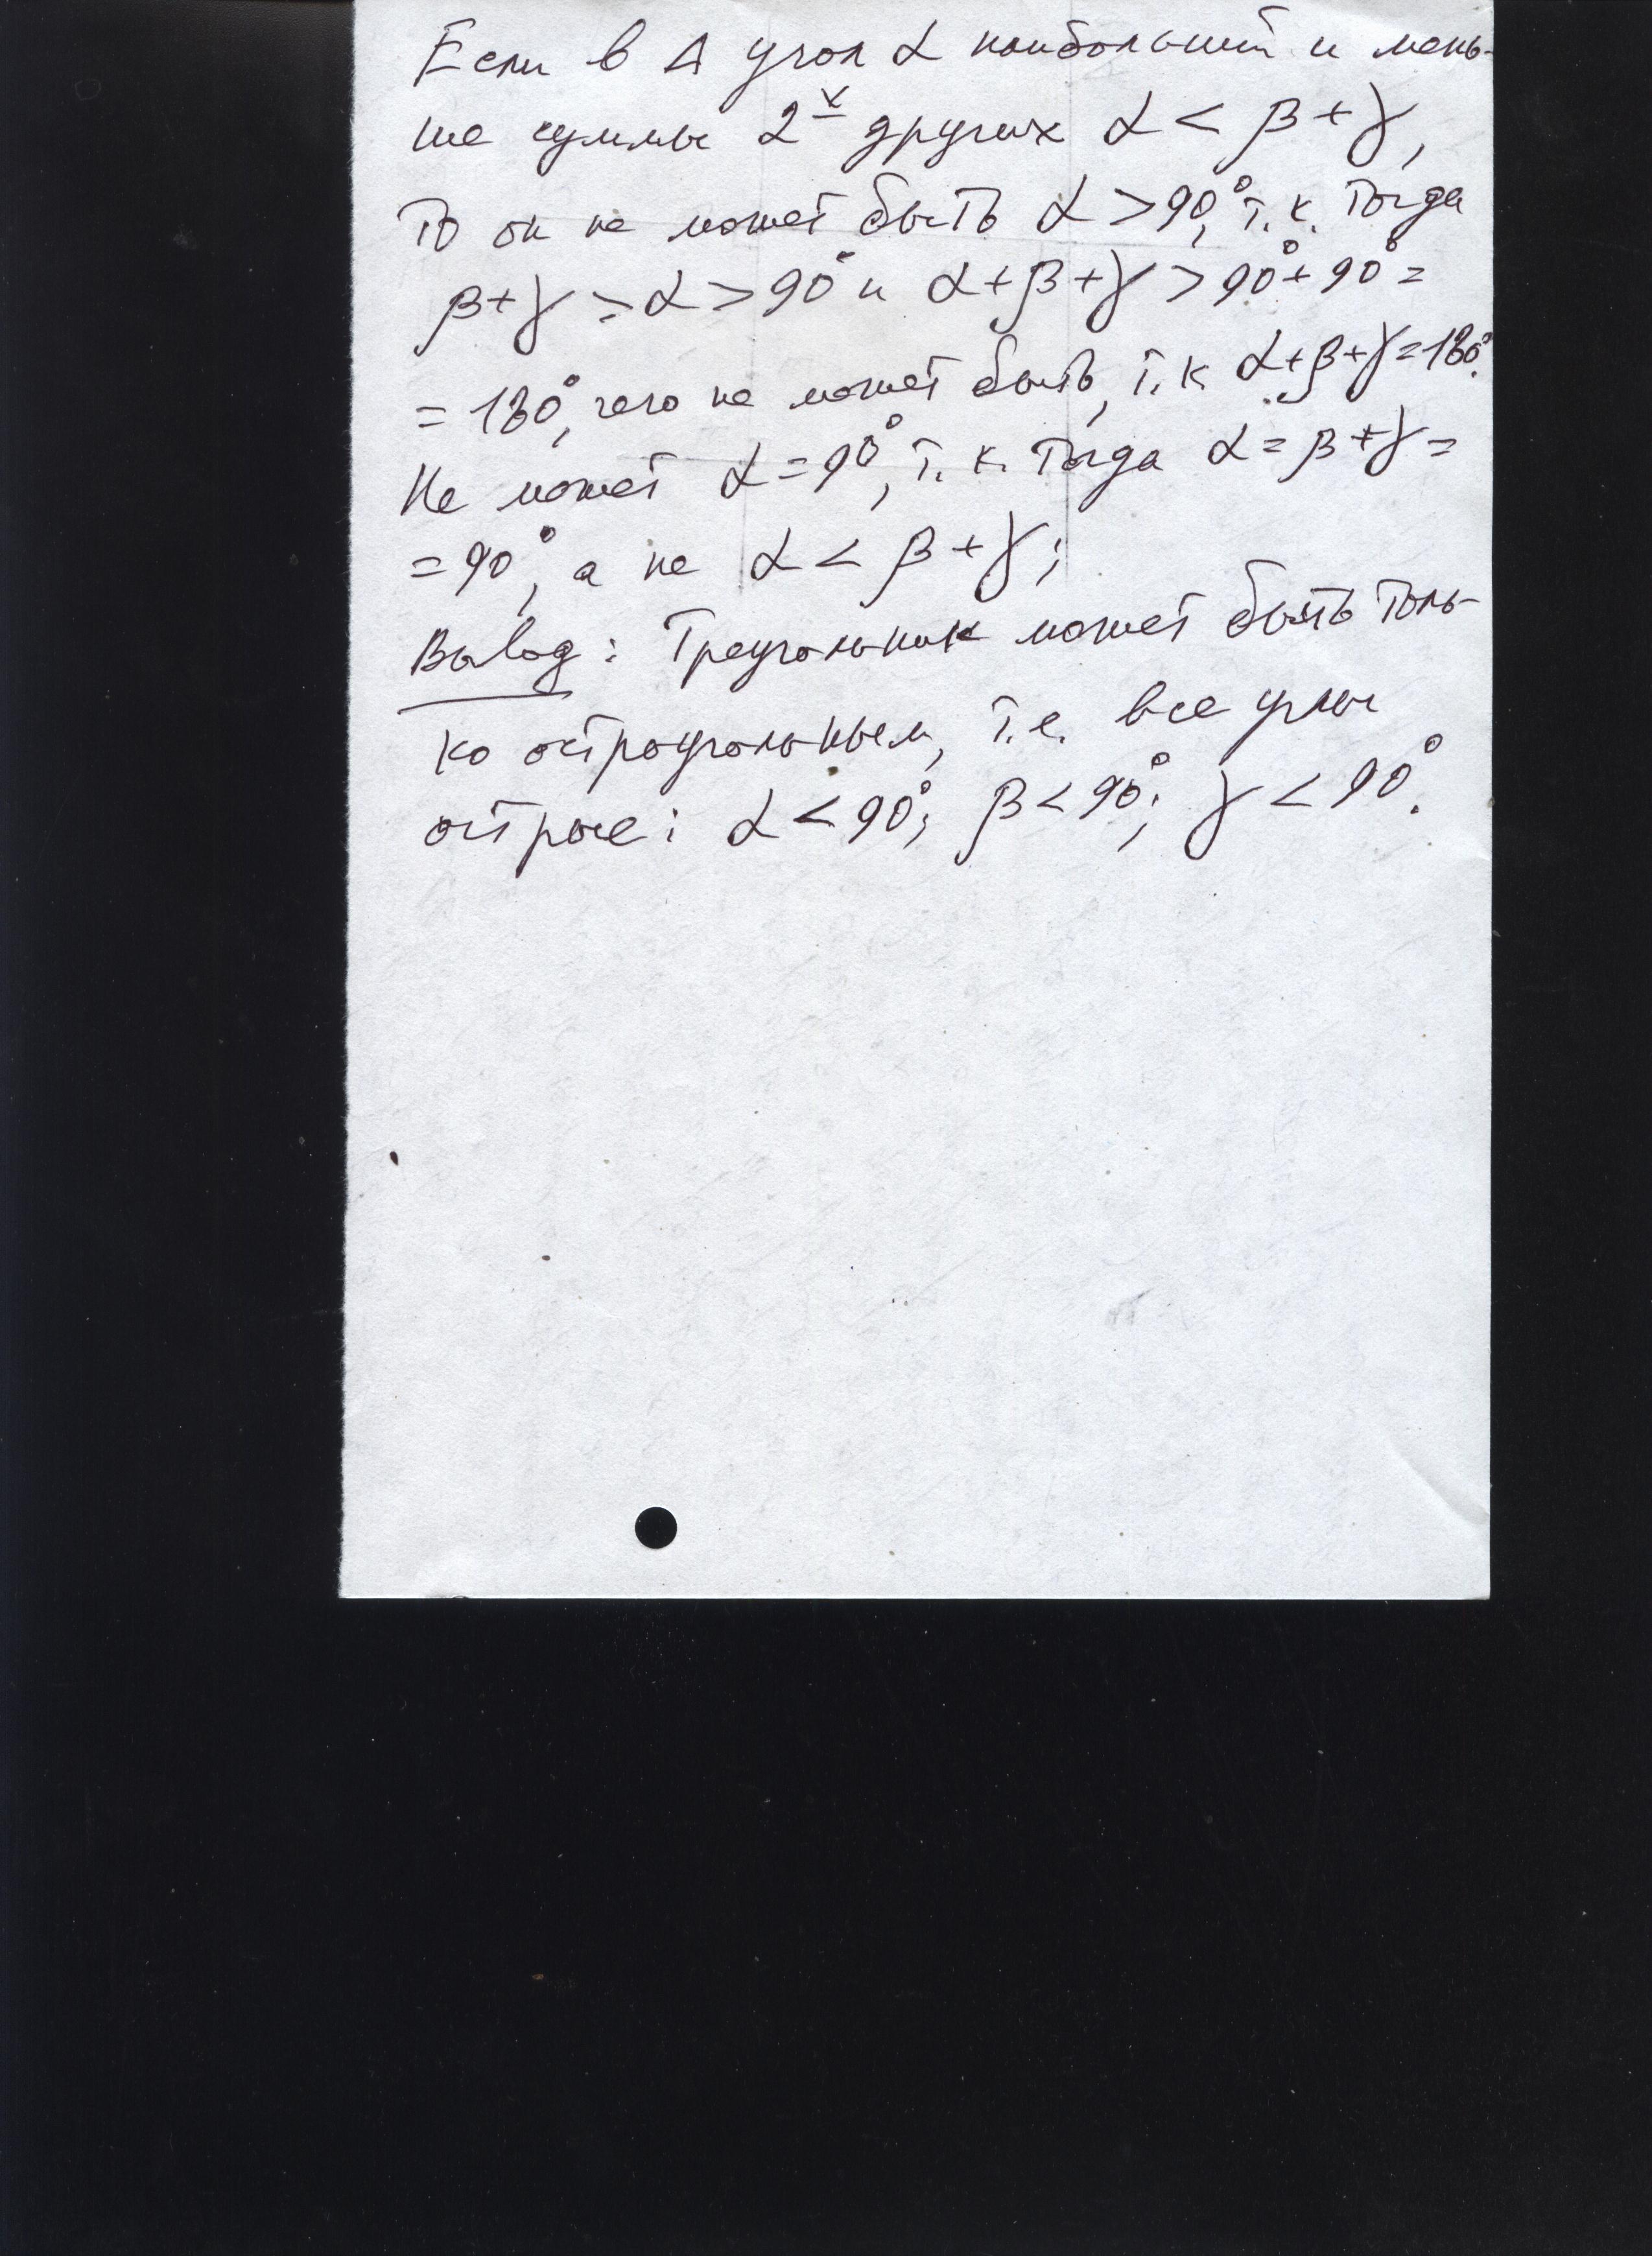 Если в Δ угол α наибольший и мень-
ше суммы 2х других α < β + γ,
То он не может быть α > 90°, т. к. Тогда
β + γ > α > 90° и α + β + γ > 90° + 90° =
= 180°, чего не может быть, т. к α + β + γ = 180°.
Не может α = 90°, т. к. Тогда α = β + γ =
= 90°, а не α < β + γ;
Вывод: Треугольник может быть толь-
ко остроугольным, т. е. все углы
острые: α < 90°; β < 90°; γ < 90°.